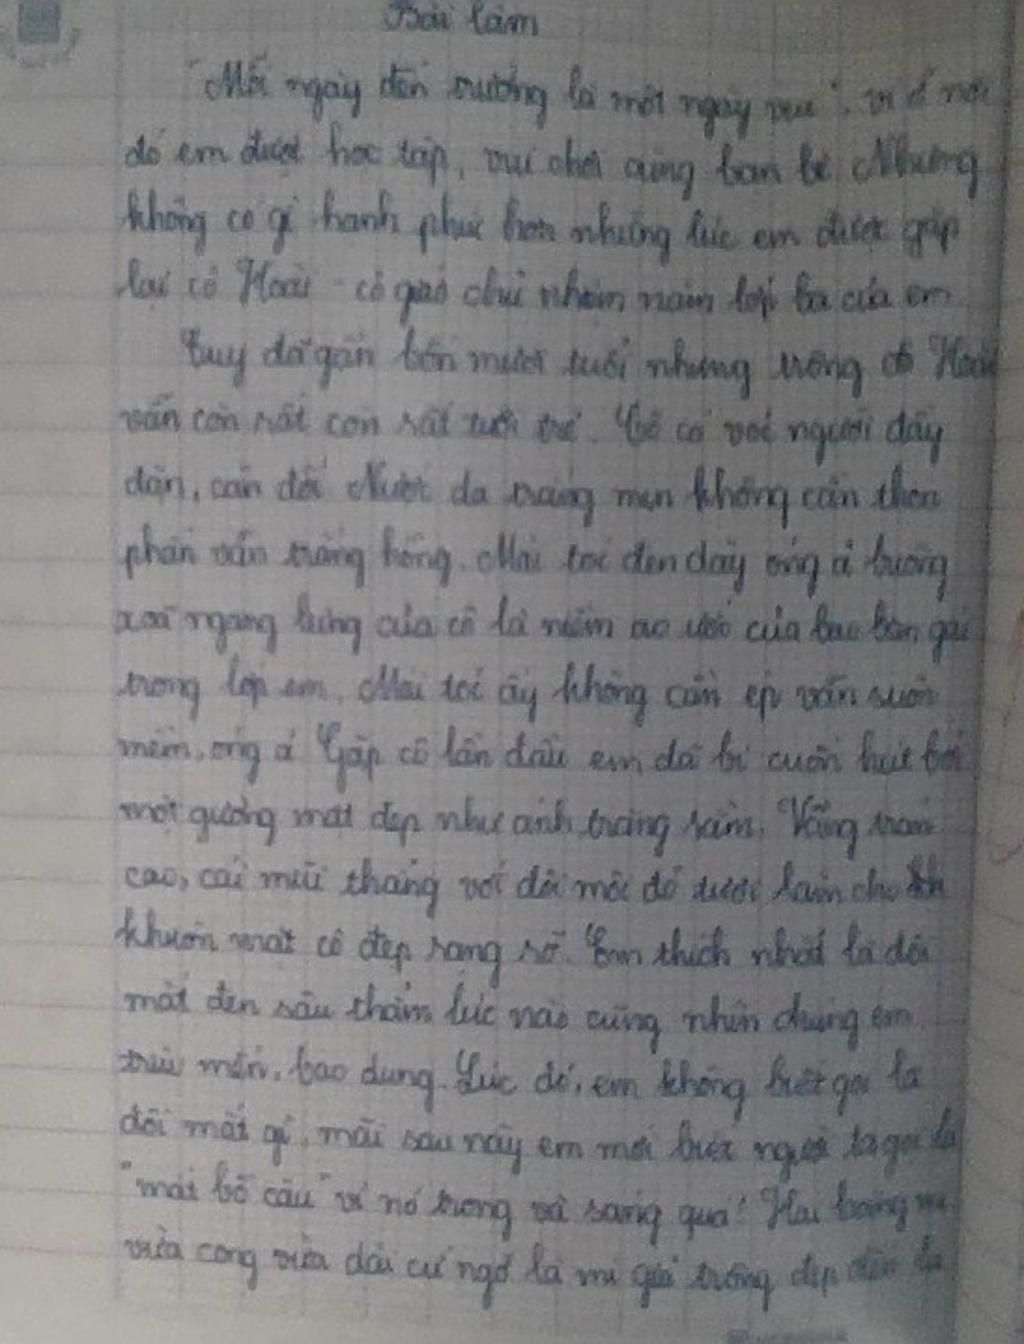 Bài làm
"Mỗi ngày đến trường là một ngày vui". vì ở nơi
đó em được học tập, vui chơi cùng bạn bè. Nhưng
không có gì hạnh phúc hơn những lúc em được gặp
lại cô Hoài - cô giáo chủ nhiệm năm lớp ba của em
Tuy đã gần bốn mươi tuổi nhưng trông cô Hoài
vẫn còn rất còn rất tươi trẻ. Cô có vóc người đầy
dặn, cân đối. Nước da trắng mịn không cần thoa
phấn vẫn trắng hồng. Mái tóc đen dày óng ả buông
xoã ngang lưng của cô là niềm ao ước của bao bạn gái
trong lớp em. Mái tóc ấy không cần ép vẫn suôn
mềm, óng ả. Gặp cô lần đầu em đã bị cuốn hút bởi
một gương mặt đẹp như ánh trăng rằm. Vầng trán
cao, cái mũi thẳng với đôi môi đỏ tươi làm cho
khuôn mặt cô đẹp rạng rỡ. Em thích nhất là đôi
mắt đen sâu thẳm lúc nào cũng nhìn chúng em
trìu mến, bao dung. Lúc đó, em không biết gọi là
đôi mắt gì, mãi sau này em mới biết người ta gọi là
"mắt bồ câu" vì nó trong và sáng quá! Hai hàng mi
vừa cong vừa dài cứ ngỡ là mi giả trông đẹp đến lạ